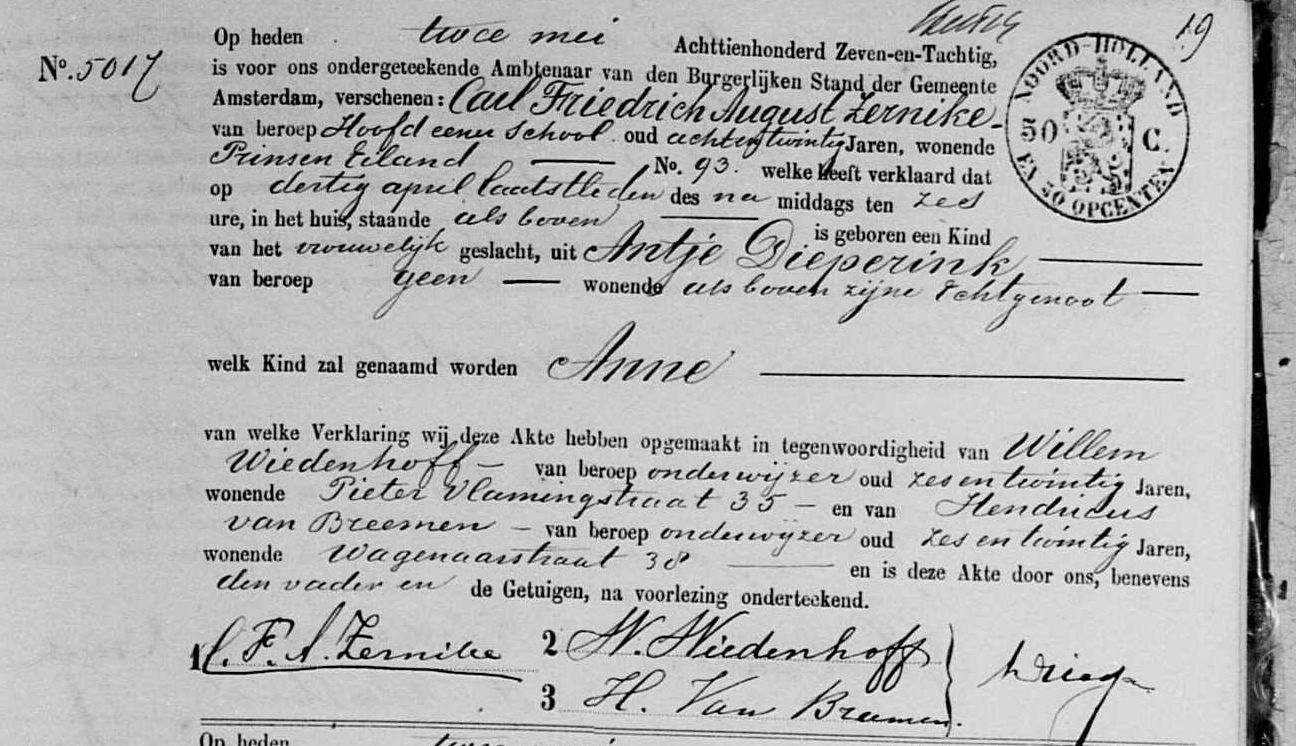 19
Op heden twee mei Achttienhonderd Zeven-en-Tachtig,
No. 5017 is voor ons ondergeteekende Ambtenaar van den Burgerlijken Stand der Gemeente
Amsterdam, verschenen: Carl Friedrich August Zernike
van beroep Hoofd eener School oud achtentwintig Jaren, wonende
Prinsen Eiland No. 93. welke heeft verklaard dat
op dertig april laatstleden des na middags ten zes
ure, in het huis, staande als boven
is geboren een Kind
van het vrouwelijk geslacht, uit Antje Dieperink
van beroep geen wonende als boven zijne Echtgenoot
welk Kind zal genaamd worden Anne
van welke Verklaring wij deze Akte hebben opgemaakt in tegenwoordigheid van Willem
Wiedenhoff van beroep onderwijzer oud zes en twintig Jaren,
wonende Pieter Vlamingstraat 35 en van Hendricus
van Breemen van beroep onderwijzer oud zes en twintig Jaren,
wonende Wagenaarstraat 38 en is deze Akte door ons, benevens
den vader en de Getuigen, na voorlezing onderteekend.
1 C. F. A. Zernike 2 W. Wiedenhoff
3 H. Van Breemen.
NOORD-HOLLAND
50 C.
EN 50 OPCENTEN
Op heden twee mei